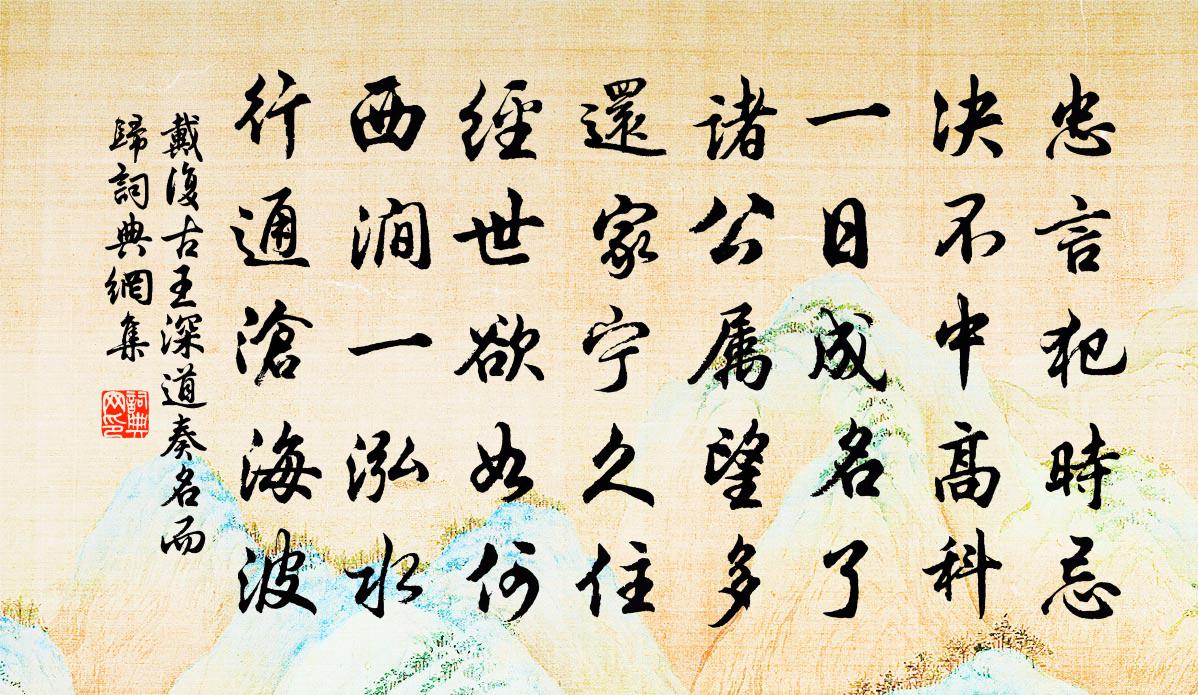 忠言犯時忌
决不中高科
一日成名了
诸公属望多
還家宁久住
經世欲如何
西澗一泓水
行通滄海波
戴復古王深道奏名而
歸詞典網集
詞典
网印